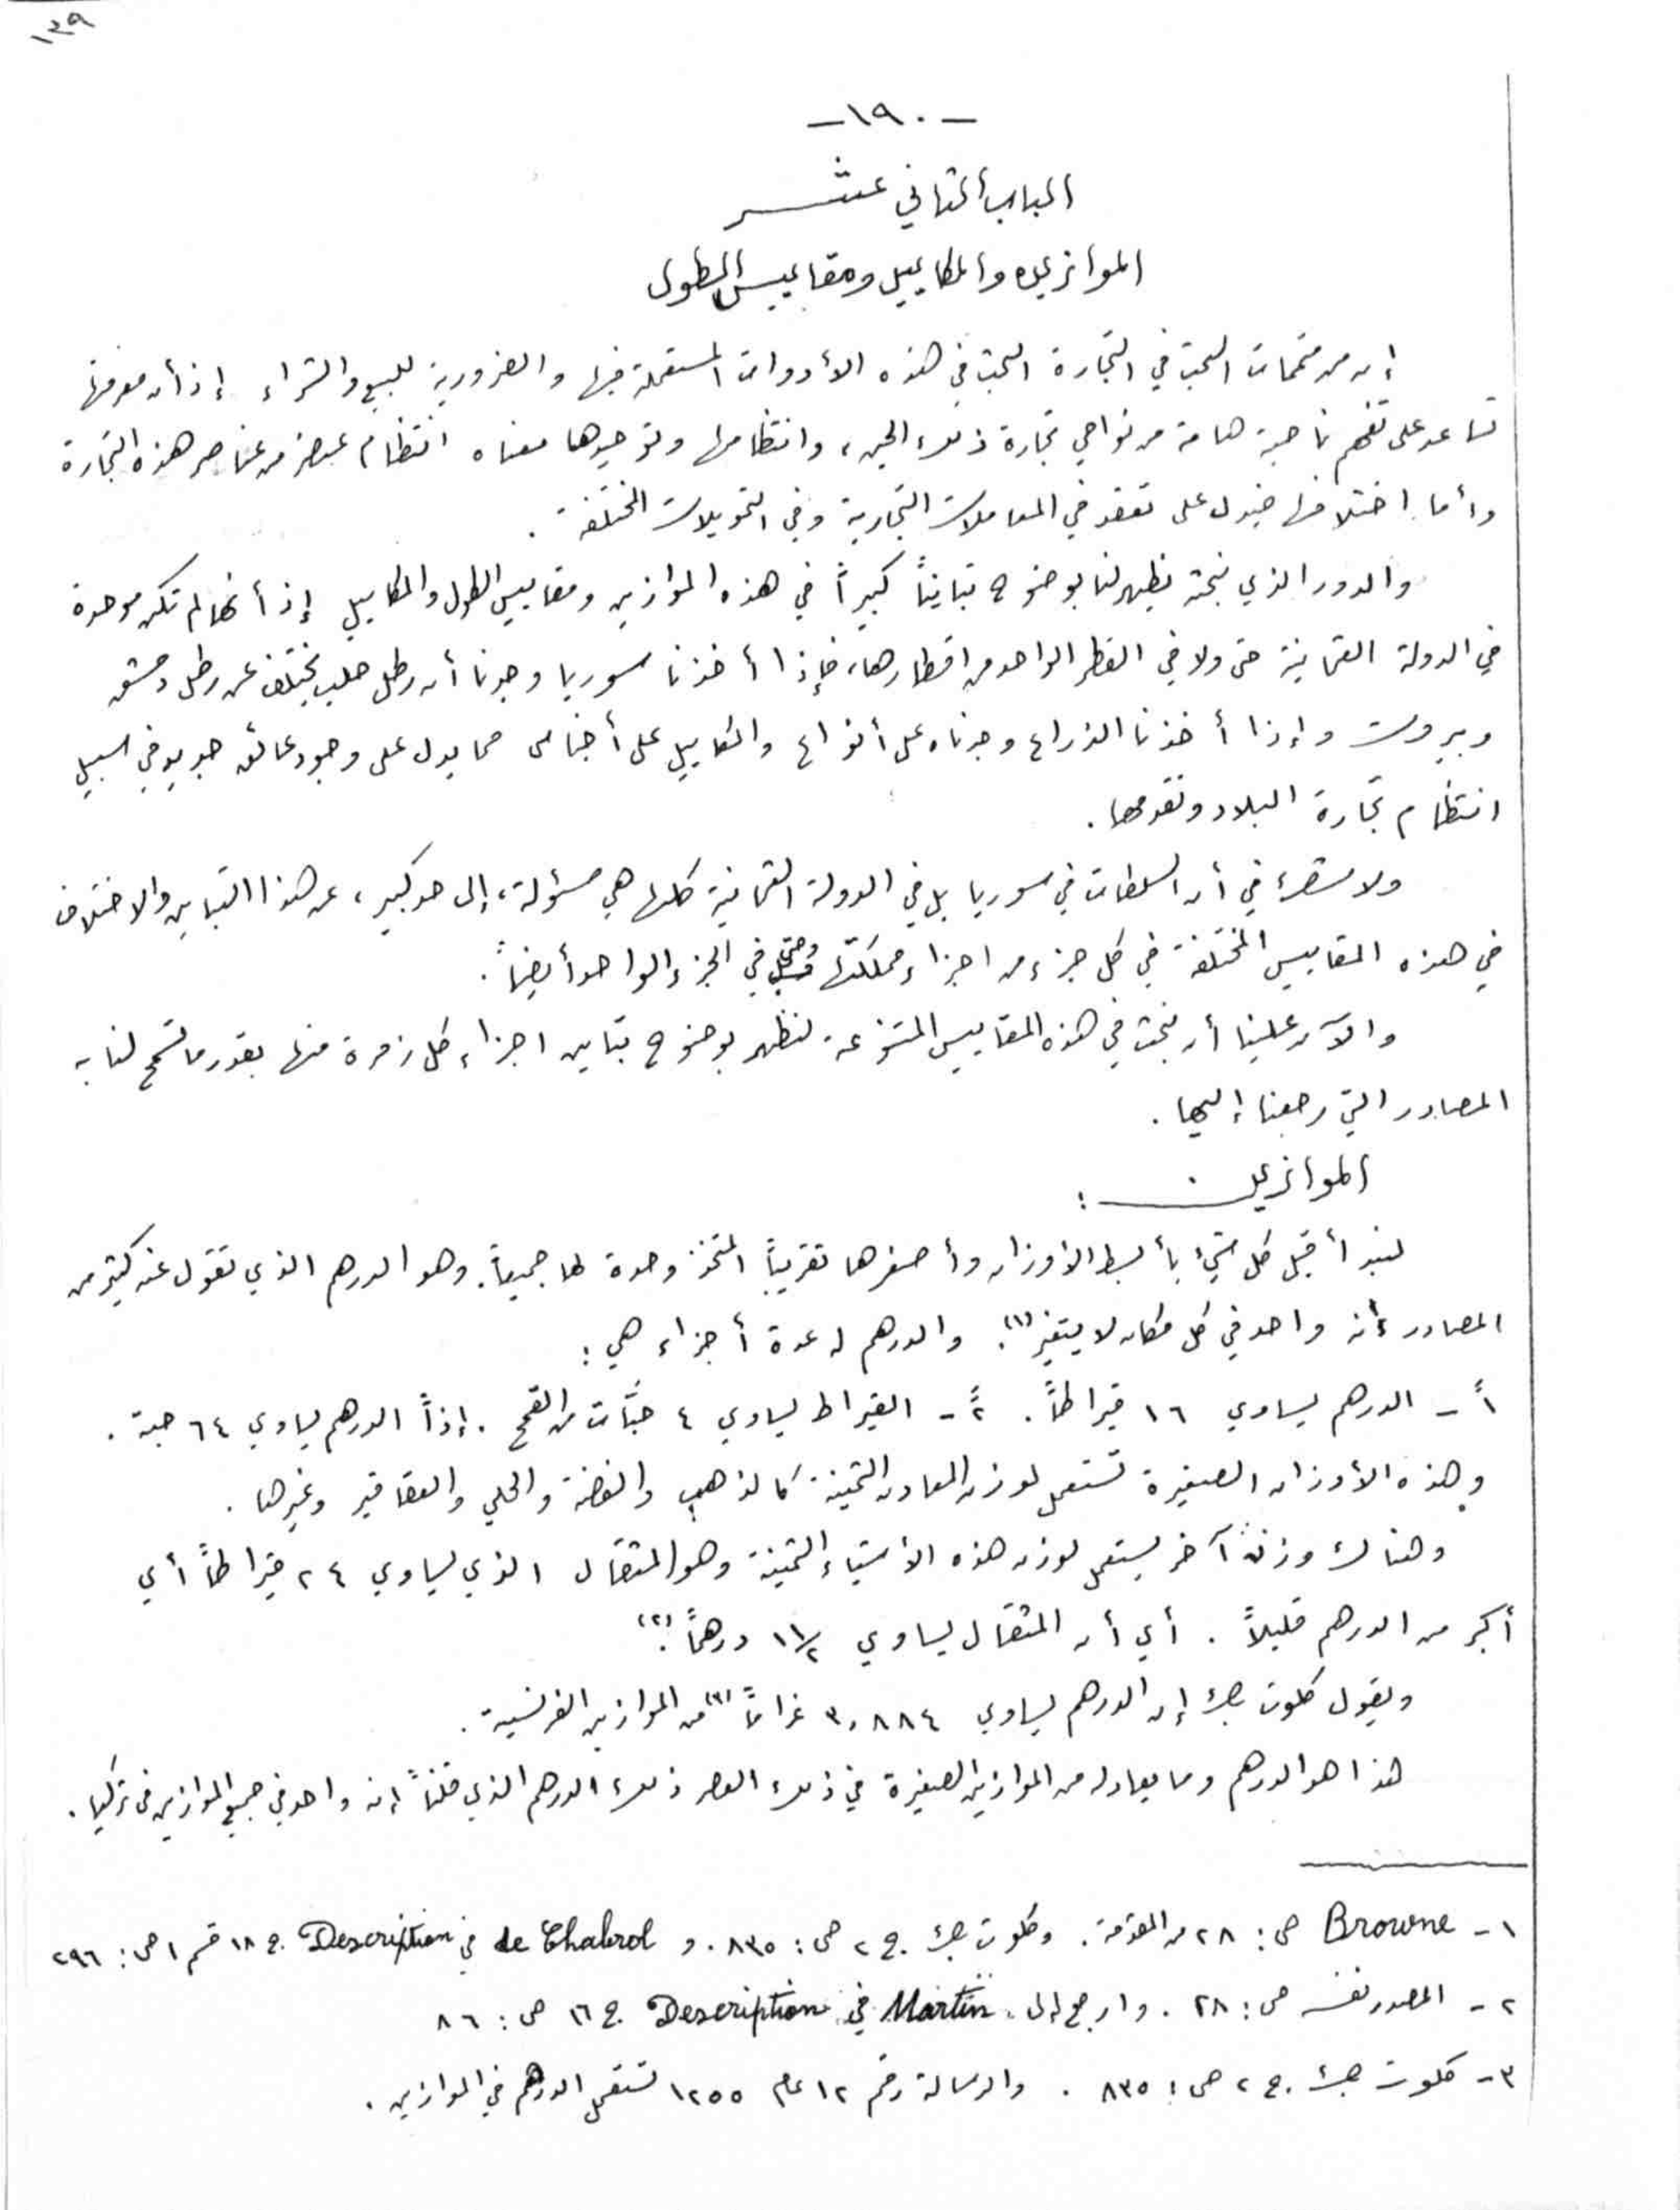 ١٣٩
-١٩٠-
الباب الثاني عشر
الموازين والمكاييل ومقاييس الطول
إن من متممات البحث في التجارة البحث في هذه الأدوات المستعملة فيها والضرورية للبيع والشراء إذ أن معرفتها
تساعد على تفهم ناحية هامة من نواحي تجارة ذلك الحين، وانتظامها وتوحيدها معناه انتظام عنصر من عناصر هذه التجارة
وأما اختلافها فيدل على تعقد في المعاملات التجارية وفي التحويلات المختلفة.
والدور الذي نبحثه يظهر لنا بوضوح تبايناً كبيراً في هذه الموازين ومقاييس الطول والمكاييل إذ أنها لم تكن موحدة
في الدولة العثمانية حتى ولا في القطر الواحد من اقطارها، فإذا أخذنا سوريا وجدنا أن رطل حلب يختلف عن رطل دمشق
وبيروت وإذا أخذنا الذراع وجدناه على أنواع والمكاييل على أجناس مما يدل على وجود عائق جديد في سبيل
انتظام تجارة البلاد وتقدمها.
ولا شك في أن السلطات في سوريا بل في الدولة العثمانية كلها هي مسؤلة، إلى حد كبير، عن هذا التباين والاختلاف
في هذه المقاييس المختلفة في كل جزء من اجزاء مملكتها وحتى في الجزء الواحد أيضاً.
والآن علينا أن نبحث في هذه المقاييس المتنوعة لنظهر بوضوح تباين اجزاء كل زمرة منها بقدر ما تسمح لنا به
المصادر التي رجعنا إليها.
الموازين :
لنبدأ قبل كل شيء بأبسط الأوزان وأصغرها تقريباً المتخذ وحدة لها جميعاً. وهو الدرهم الذي تقول عنه كثير من
المصادر أنه واحد في كل مكان لا يتغير (١). والدرهم له عدة أجزاء هي :
١ً - الدرهم يساوي ١٦ قيراطاً. ٢ً - القيراط يساوي ٤ حبّات من القمح. إذاً الدرهم يساوي ٦٤ حبة.
وهذه الأوزان الصغيرة تستعمل لوزن المعادن الثمينة كالذهب والفضة والحلي والعقاقير وغيرها.
وهنالك وزنة آخر يستعمل لوزن هذه الأشياء الثمينة وهو المثقال الذي يساوي ٢٤ قيراطاً أي
أكبر من الدرهم قليلاً. أي أن المثقال يساوي ١ ١/٢ درهماً (٢).
ويقول كلوت بك إن الدرهم يساوي ٣,٨٨٤ غراماً (٣) من الموازين الفرنسية.
هذا هو الدرهم وما يعادله من الموازين الصغيرة في ذلك العصر ذلك الدرهم الذي قلنا إنه واحد في جميع الموازين في تركيا.
١- Browne ص: ٢٨ من المقدمة. وكلوت بك ج ٢ ص: ٨٣٥. و de Chabrol في Description ج ١٨ قسم ١ ص: ٢٩٦
٢- المصدر نفسه ص: ٢٨. وارجع إلى Martin في Description ج ١٦ ص: ٨٦
٣- كلوت بك ج ٢ ص: ٨٣٥. والرسالة رقم ١٢ عام ١٢٥٥ تستعمل الدرهم في الموازين.